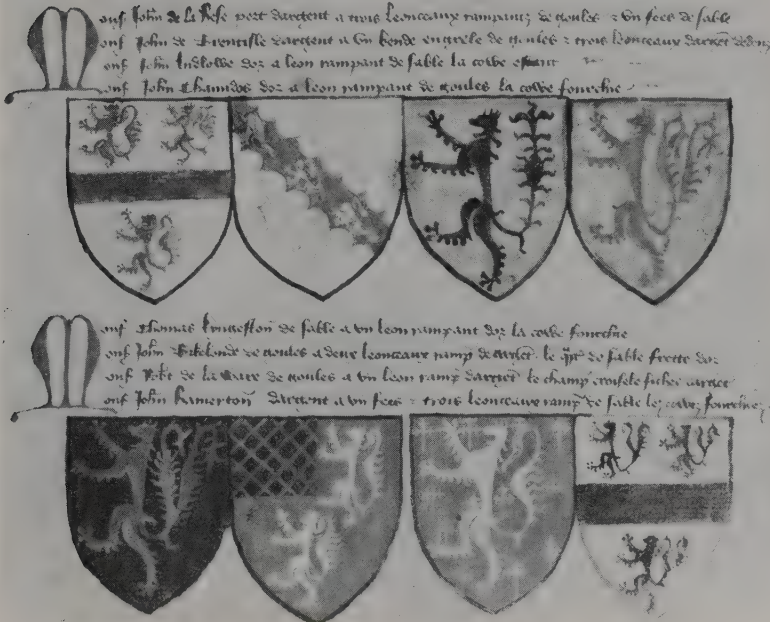 ons John de la Rose port dargent a trois leonceaux rampantz de goules & un fees de sable
ons John de dargent a un bende engrele de goules & trois leonceaux dargent
ons John Ludlowe dor a leon rampant de sable la cowe
ons John Chaundos dor a leon rampant de goules la cowe fourchie
ons Thomas de sable a un leon rampant dor la cowe fourchie
ons John de goules a deux leonceaux ramp dargent le de sable frette dor
ons Robt de la Ware de goules a un leon ramp dargent le champ croisele fichee argent
ons John dargent a un fees & trois leonceaux ramp de sable lez cowez fourchiez